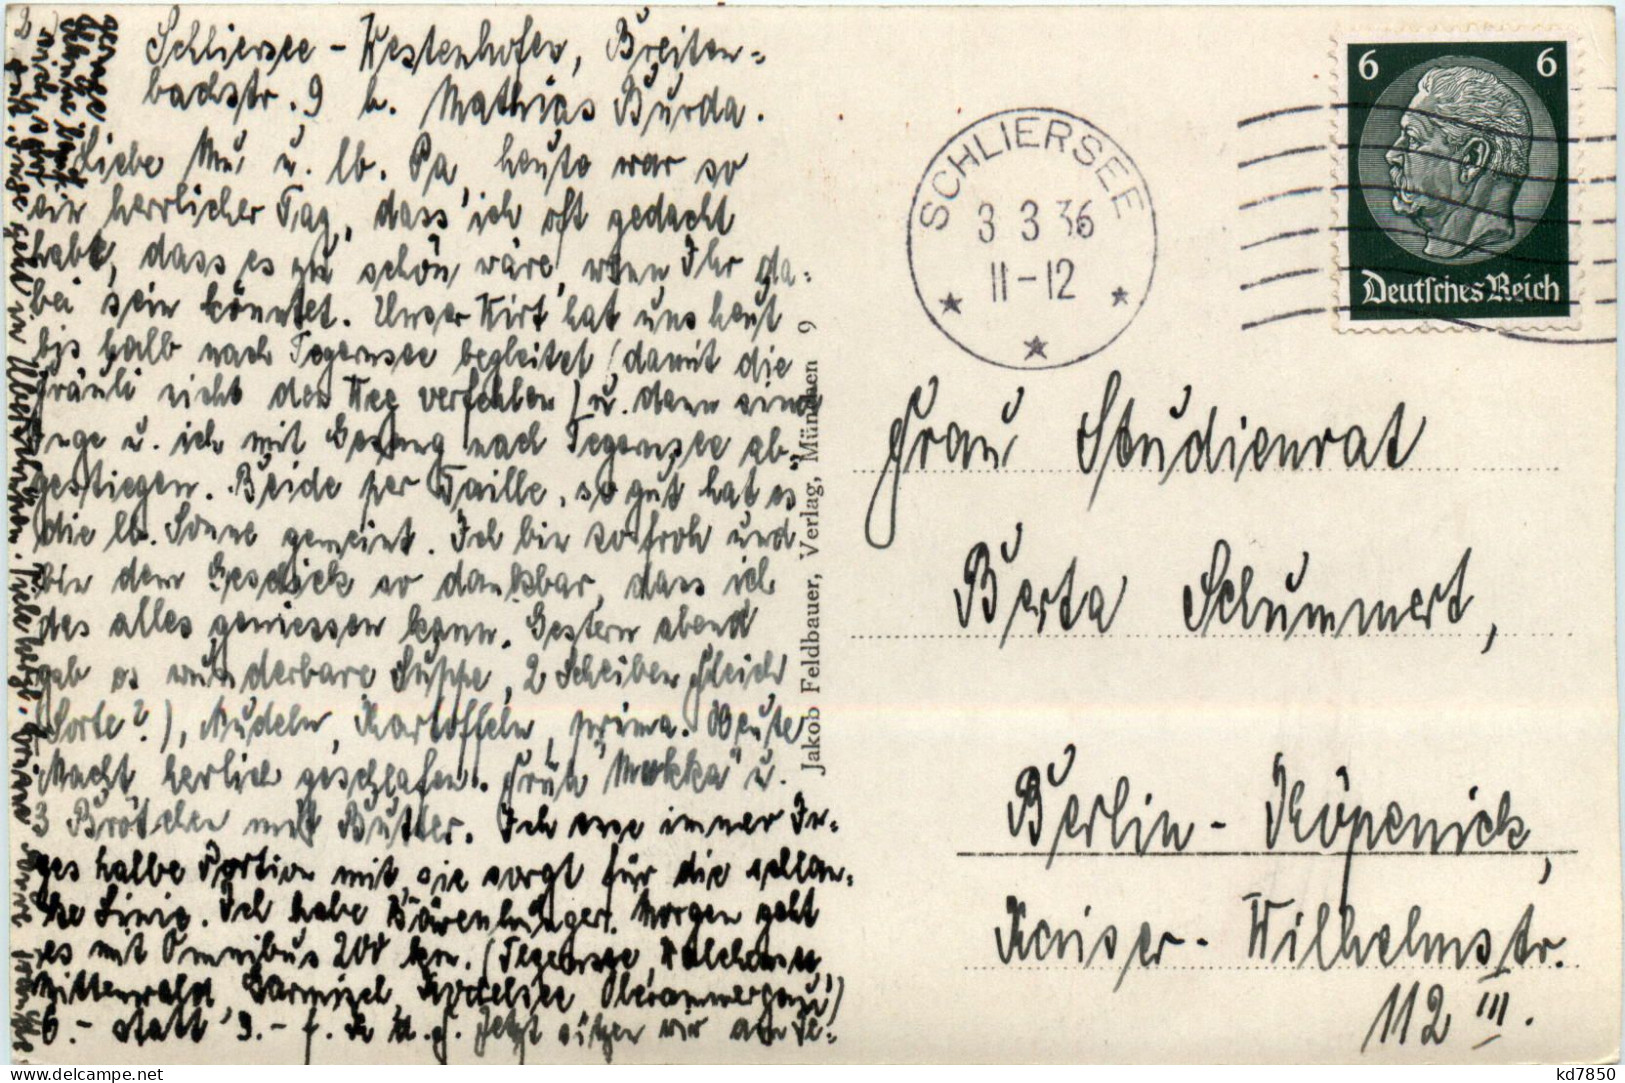 Schliersee - Westenhofen, Breiten=
bachstr. 9 b. Mathias Burda.
Liebe Mu, u. lb. Pa, heute war so
ein herrlicher Tag, dass ich oft gedacht
habe, dass es zu schön wäre, wenn Ihr da=
bei sein könntet. Unser Wirt hat uns heut
bis halb nach Tegernsee begleitet (damit die
Fräuli nicht den Weg verfehlen) u. dann sind
Inge u. ich mit Gesang nach Tegernsee ab=
gestiegen. Beide per Taille, so gut hat es
die lb. Sonne gemeint. Ich bin so froh und
bin dem Geschick so dankbar, dass ich
das alles geniessen kann. Gestern abend
gab es wunderbare Suppe, 2 Scheiben Fleisch
Sorte?), Nudeln, Kartoffeln, prima. Heute
Nacht herlich geschlafen. Früh "Mokka" u.
3 Brötchen mit Butter. Ich esse immer In=
ges halbe Portion mit, sie sorgt für die schlan=
ke Linie. Ich habe Bärenhunger. Morgen geht
es mit Omnibus 200 km. (Tegernsee, Walchensee,
Mittenwald, Garmisch, Oberammergau)
6.- statt 9.- Jetzt sitzen wir am Te=
gernsee.
geht in Überschuhen. Viele herzl. Grüsse
Jakob Feldbauer, Verlag, München 9
SCHLIERSEE
3 3 36
11-12
6 6
Deutsches Reich
Frau Studienrat
Berta Schummert,
Berlin - Köpenick,
Kaiser - Wilhelmstr.
112 III.
kd7850